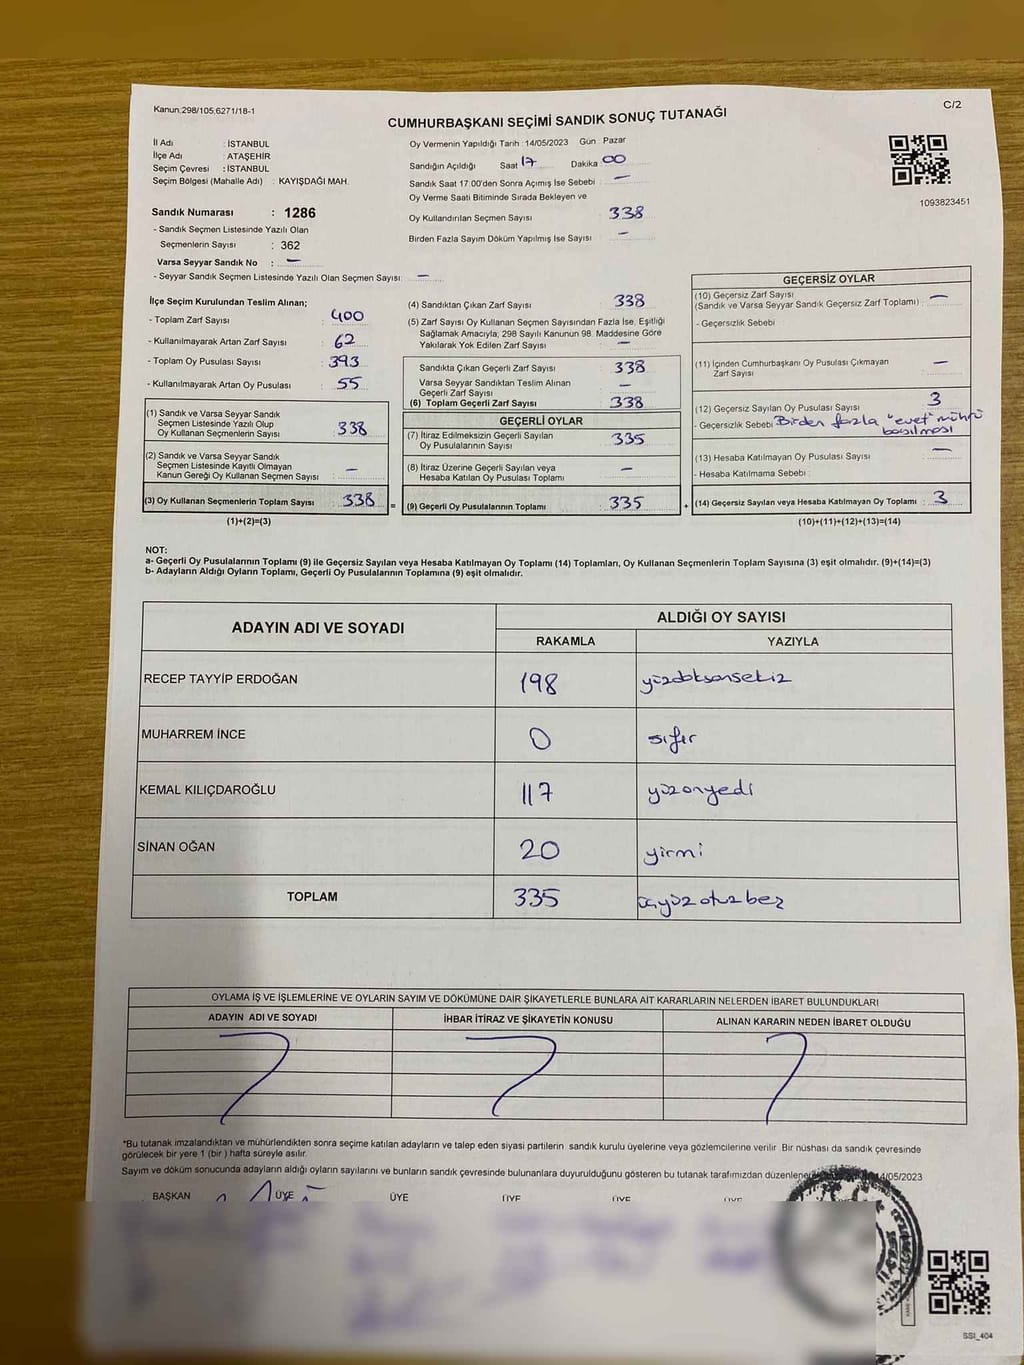 Kanun:298/105;6271/18-1
C/2
CUMHURBAŞKANI SEÇİMİ SANDIK SONUÇ TUTANAĞI
İl Adı : İSTANBUL
İlçe Adı : ATAŞEHİR
Seçim Çevresi : İSTANBUL
Seçim Bölgesi (Mahalle Adı) : KAYIŞDAĞI MAH.
Sandık Numarası : 1286
- Sandık Seçmen Listesinde Yazılı Olan
Seçmenlerin Sayısı : 362
Varsa Seyyar Sandık No : —
- Seyyar Sandık Seçmen Listesinde Yazılı Olan Seçmen Sayısı: —
Oy Vermenin Yapıldığı Tarih : 14/05/2023 Gün : Pazar
Sandığın Açıldığı Saat 17 Dakika 00
Sandık Saat 17:00'den Sonra Açımış İse Sebebi : —
Oy Verme Saati Bitiminde Sırada Bekleyen ve
Oy Kullandırılan Seçmen Sayısı : 338
Birden Fazla Sayım Döküm Yapılmış İse Sayısı : —
1093823451
İlçe Seçim Kurulundan Teslim Alınan;
- Toplam Zarf Sayısı : 400
- Kullanılmayarak Artan Zarf Sayısı : 62
- Toplam Oy Pusulası Sayısı : 393
- Kullanılmayarak Artan Oy Pusulası : 55
(1) Sandık ve Varsa Seyyar Sandık
Seçmen Listesinde Yazılı Olup
Oy Kullanan Seçmenlerin Sayısı : 338
(2) Sandık ve Varsa Seyyar Sandık
Seçmen Listesinde Kayıtlı Olmayan
Kanun Gereği Oy Kullanan Seçmen Sayısı : —
(3) Oy Kullanan Seçmenlerin Toplam Sayısı : 338
(1)+(2)=(3)
=
(4) Sandıktan Çıkan Zarf Sayısı : 338
(5) Zarf Sayısı Oy Kullanan Seçmen Sayısından Fazla İse, Eşitliği
Sağlamak Amacıyla; 298 Sayılı Kanunun 98. Maddesine Göre
Yakılarak Yok Edilen Zarf Sayısı : —
Sandıkta Çıkan Geçerli Zarf Sayısı : 338
Varsa Seyyar Sandıktan Teslim Alınan
Geçerli Zarf Sayısı : —
(6) Toplam Geçerli Zarf Sayısı : 338
GEÇERLİ OYLAR
(7) İtiraz Edilmeksizin Geçerli Sayılan
Oy Pusulalarının Sayısı : 335
(8) İtiraz Üzerine Geçerli Sayılan veya
Hesaba Katılan Oy Pusulası Toplamı : —
(9) Geçerli Oy Pusulalarının Toplamı : 335
+
GEÇERSİZ OYLAR
(10) Geçersiz Zarf Sayısı
(Sandık ve Varsa Seyyar Sandık Geçersiz Zarf Toplamı) : —
- Geçersizlik Sebebi :
(11) İçinden Cumhurbaşkanı Oy Pusulası Çıkmayan
Zarf Sayısı : —
(12) Geçersiz Sayılan Oy Pusulası Sayısı : 3
- Geçersizlik Sebebi Birden fazla "evet" mührü
basılması
(13) Hesaba Katılmayan Oy Pusulası Sayısı : —
- Hesaba Katılmama Sebebi :
(14) Geçersiz Sayılan veya Hesaba Katılmayan Oy Toplamı : 3
(10)+(11)+(12)+(13)=(14)
NOT:
a- Geçerli Oy Pusulalarının Toplamı (9) ile Geçersiz Sayılan veya Hesaba Katılmayan Oy Toplamı (14) Toplamları, Oy Kullanan Seçmenlerin Toplam Sayısına (3) eşit olmalıdır. (9)+(14)=(3)
b- Adayların Aldığı Oyların Toplamı, Geçerli Oy Pusulalarının Toplamına (9) eşit olmalıdır.
ADAYIN ADI VE SOYADI ALDIĞI OY SAYISI
RAKAMLA YAZIYLA
RECEP TAYYİP ERDOĞAN 198 yüzdoksansekiz
MUHARREM İNCE 0 sıfır
KEMAL KILIÇDAROĞLU 117 yüzonyedi
SİNAN OĞAN 20 yirmi
TOPLAM 335 üçyüzotuzbeş
OYLAMA İŞ VE İŞLEMLERİNE VE OYLARIN SAYIM VE DÖKÜMÜNE DAİR ŞİKAYETLERLE BUNLARA AİT KARARLARIN NELERDEN İBARET BULUNDUKLARI
ADAYIN ADI VE SOYADI İHBAR İTİRAZ VE ŞİKAYETİN KONUSU ALINAN KARARIN NEDEN İBARET OLDUĞU
*Bu tutanak imzalandıktan ve mühürlendikten sonra seçime katılan adayların ve talep eden siyasi partilerin sandık kurulu üyelerine veya gözlemcilerine verilir. Bir nüshası da sandık çevresinde
görülecek bir yere 1 (bir) hafta süreyle asılır.
Sayım ve döküm sonucunda adayların aldığı oyların sayılarını ve bunların sandık çevresinde bulunanlara duyurulduğunu gösteren bu tutanak tarafımızdan 14/05/2023
BAŞKAN ÜYE ÜYE ÜYE ÜYE ÜYE
SSI_404